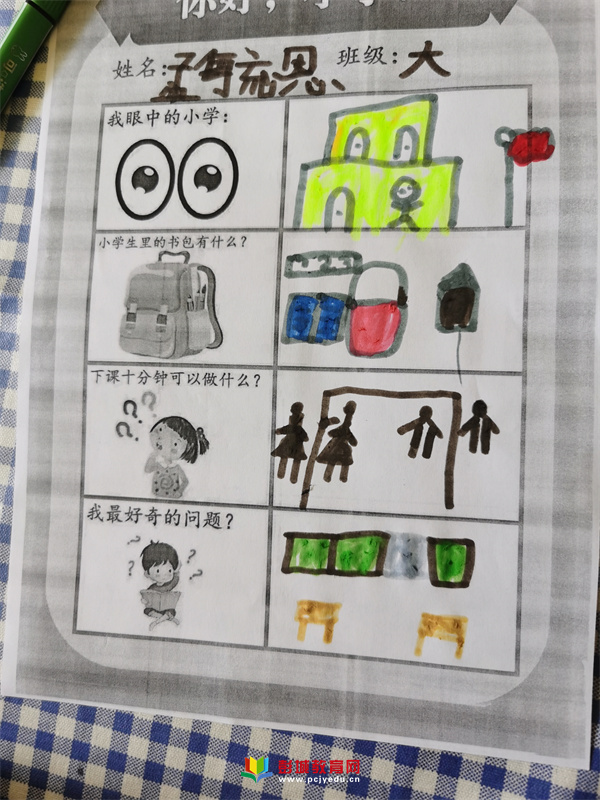 你好，小学
姓名：孟海希恩 班级：大
我眼中的小学：
小学生里的书包有什么？
下课十分钟可以做什么？
我最好奇的问题？
彭城教育网
www.pcjyedu.cn